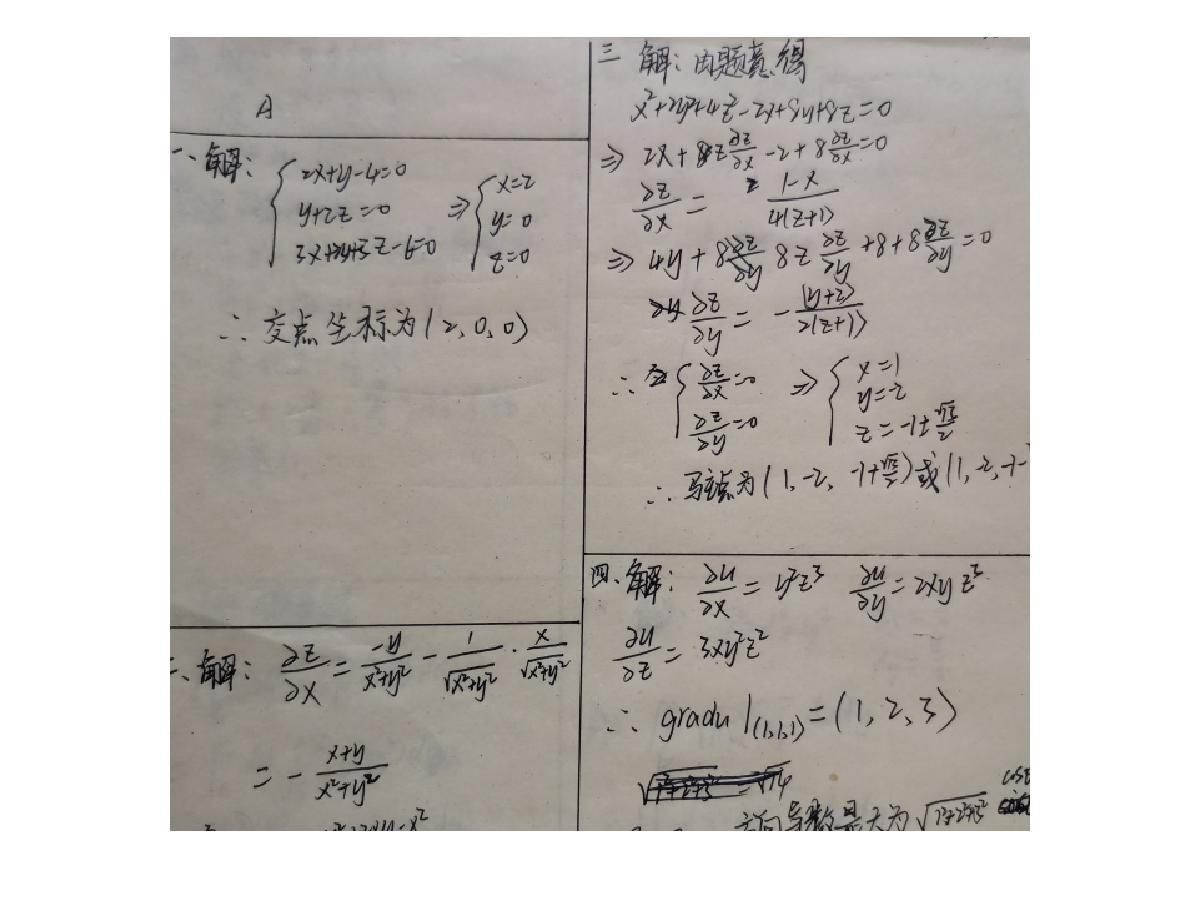 A
一、解:
{ 2x+y-4=0
y+2z=0 ⇒ { x=2 y=0 z=0
3x+2y+3z-6=0
∴ 交点坐标为(2,0,0)
二、解: ∂z/∂x = -y/(x²+y²) - 1/√(x²+y²) · x/√(x²+y²)
= - (x+y)/(x²+y²)
三 解: 由题意得
x²+2y²+4z²-2x+8y+8z=0
⇒ 2x+8z ∂z/∂x -2+8 ∂z/∂x =0
∂z/∂x = (1-x)/(4(z+1))
⇒ 4y+8 ∂z/∂y 8z ∂z/∂y +8+8 ∂z/∂y =0
∂z/∂y = - (y+2)/(2(z+1))
∴ { ∂z/∂x=0 ∂z/∂y=0 ⇒ { x=1 y=-2
∴ 驻点为(1,-2,
或(1,-2,-1-
四、解: ∂u/∂x = y²z³ ∂u/∂y = 2xyz³
∂u/∂z = 3xy²z²
∴ gradu|(1,1,1) = (1,2,3)
方向导数最大为√(1²+2²+3²)